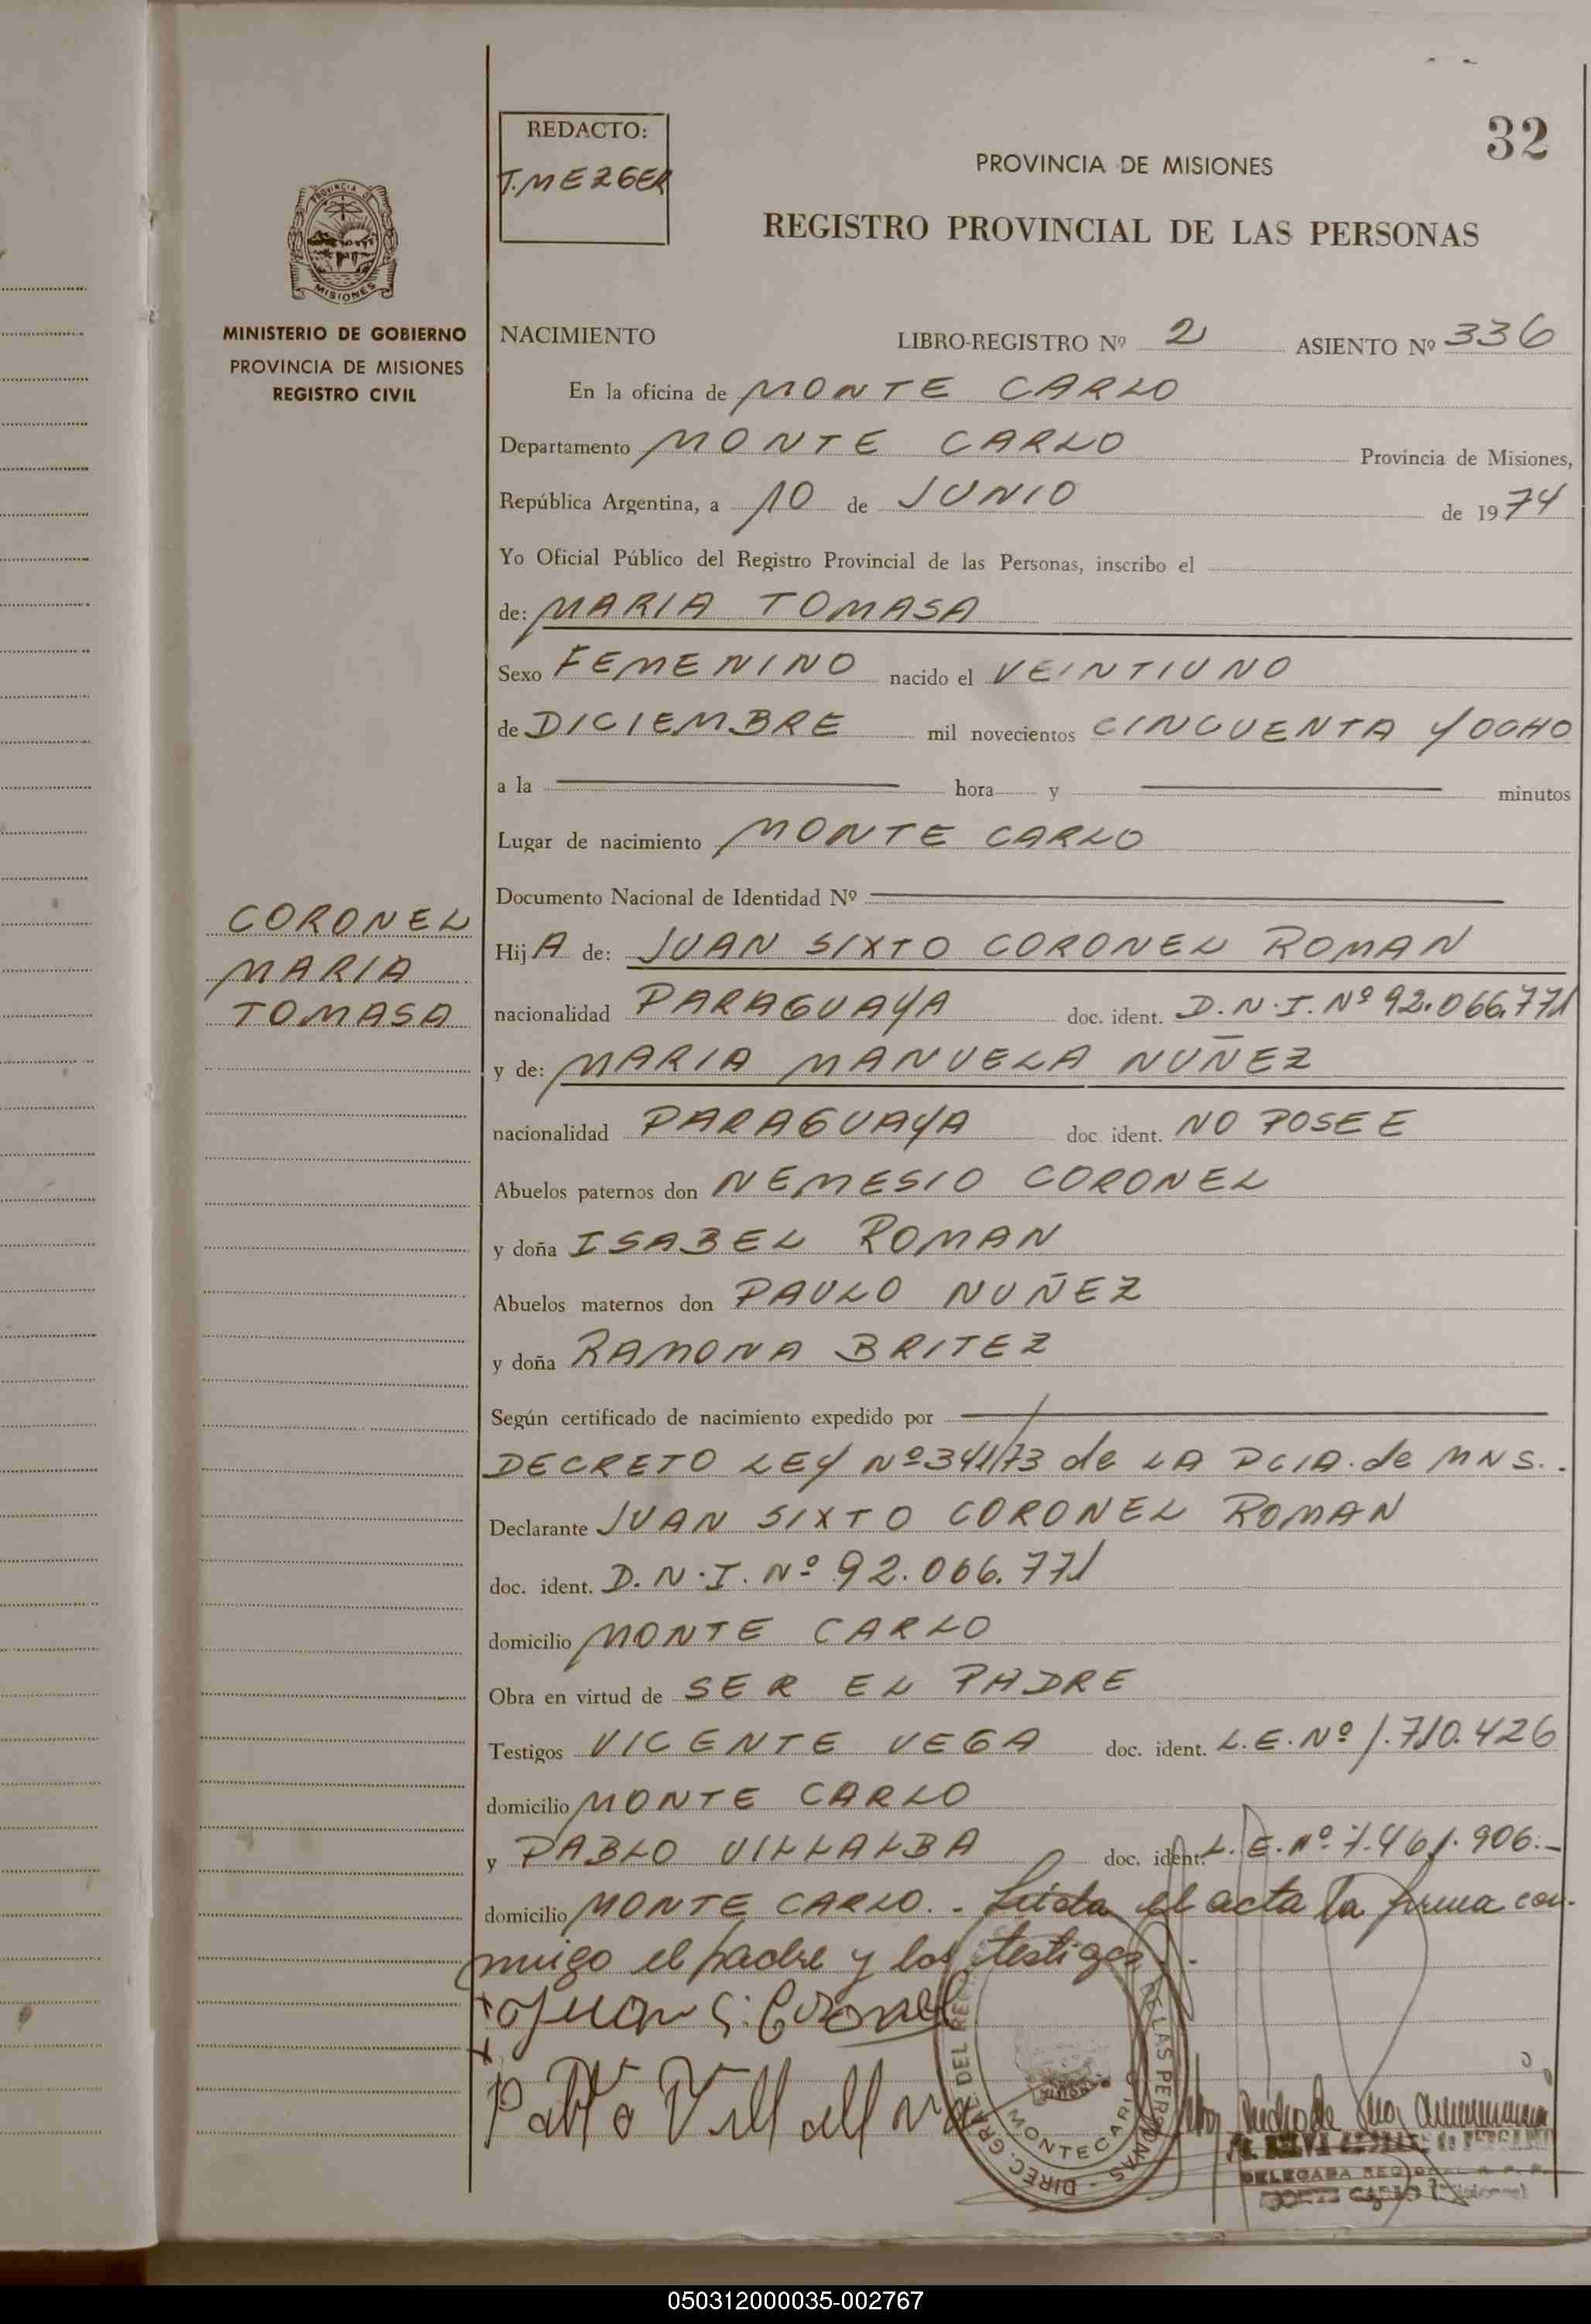 32
REDACTO:
T. MEZGER
PROVINCIA DE MISIONES
REGISTRO PROVINCIAL DE LAS PERSONAS
PROVINCIA DE
MISIONES
MINISTERIO DE GOBIERNO
PROVINCIA DE MISIONES
REGISTRO CIVIL
NACIMIENTO LIBRO-REGISTRO Nº 2 ASIENTO Nº 336
En la oficina de MONTE CARLO
Departamento MONTE CARLO Provincia de Misiones,
República Argentina, a 10 de JUNIO de 1974
Yo Oficial Público del Registro Provincial de las Personas, inscribo el
de: MARIA TOMASA
Sexo FEMENINO nacido el VEINTIUNO
de DICIEMBRE mil novecientos CINCUENTA Y OCHO
a la hora y minutos
Lugar de nacimiento MONTE CARLO
Documento Nacional de Identidad Nº
CORONEL
MARIA
TOMASA
Hij A de: JUAN SIXTO CORONEL ROMAN
nacionalidad PARAGUAYA doc. ident. D.N.I. Nº 92.066.771
y de: MARIA MANUELA NUÑEZ
nacionalidad PARAGUAYA doc ident. NO POSEE
Abuelos paternos don NEMESIO CORONEL
y doña ISABEL ROMAN
Abuelos maternos don PAULO NUÑEZ
y doña RAMONA BRITEZ
Según certificado de nacimiento expedido por
DECRETO LEY Nº 341/73 de LA PCIA. de MNS..
Declarante JUAN SIXTO CORONEL ROMAN
doc. ident. D.N.I. Nº 92.066.771
domicilio MONTE CARLO
Obra en virtud de SER EL PADRE
Testigos VICENTE VEGA doc. ident. L.E. Nº 1.710.426
domicilio MONTE CARLO
y PABLO VILLALBA doc. ident. L.E. Nº 7.461.906.-
domicilio MONTE CARLO.- Leida el acta la firma con-
migo el padre y los testigos.-
Juan S. Coronel
Pablo Villalva
DIREC. GRAL. DEL DE LAS PERSONAS
MONTECARLO
DELEGADA
MONTE CARLO (Misiones)
050312000035-002767